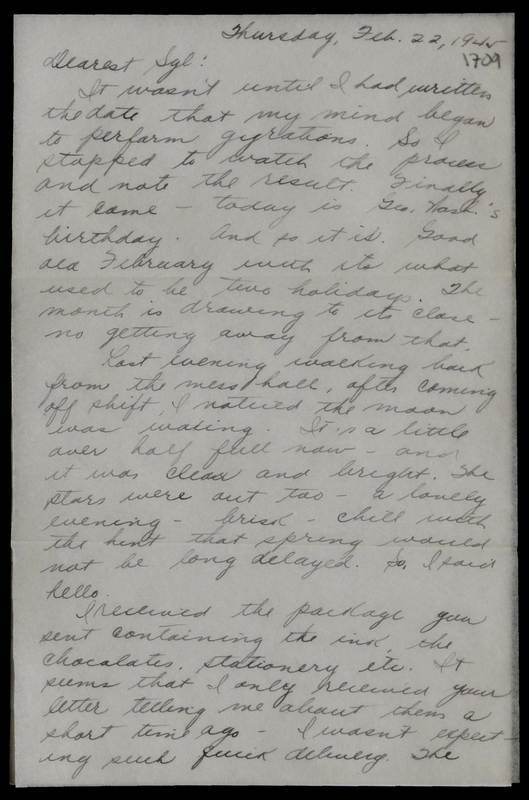 Thursday, Feb. 22, 1945
1709
Dearest Syl:
It wasn't until I had written
the date that my mind began
to perform gyrations. So I
stopped to watch the process
and note the result. Finally
it came - today is Geo. Wash.'s
birthday. And so it is. Good
old February with its what
used to be two holidays. The
month is drawing to its close -
no getting away from that.
Last evening walking back
from the mess hall, after coming
off shift, I noticed the moon
was waxing. It's a little
over half full now - and
it was clear and bright. The
stars were out too - a lovely
evening - brisk - chill with
the hint that spring would
not be long delayed. So, I said
hello.
I received the package you
sent containing the ink, the
chocolates, stationery etc. It
seems that I only received your
letter telling me about them a
short time ago - I wasn't expect-
ing such quick delivery. The